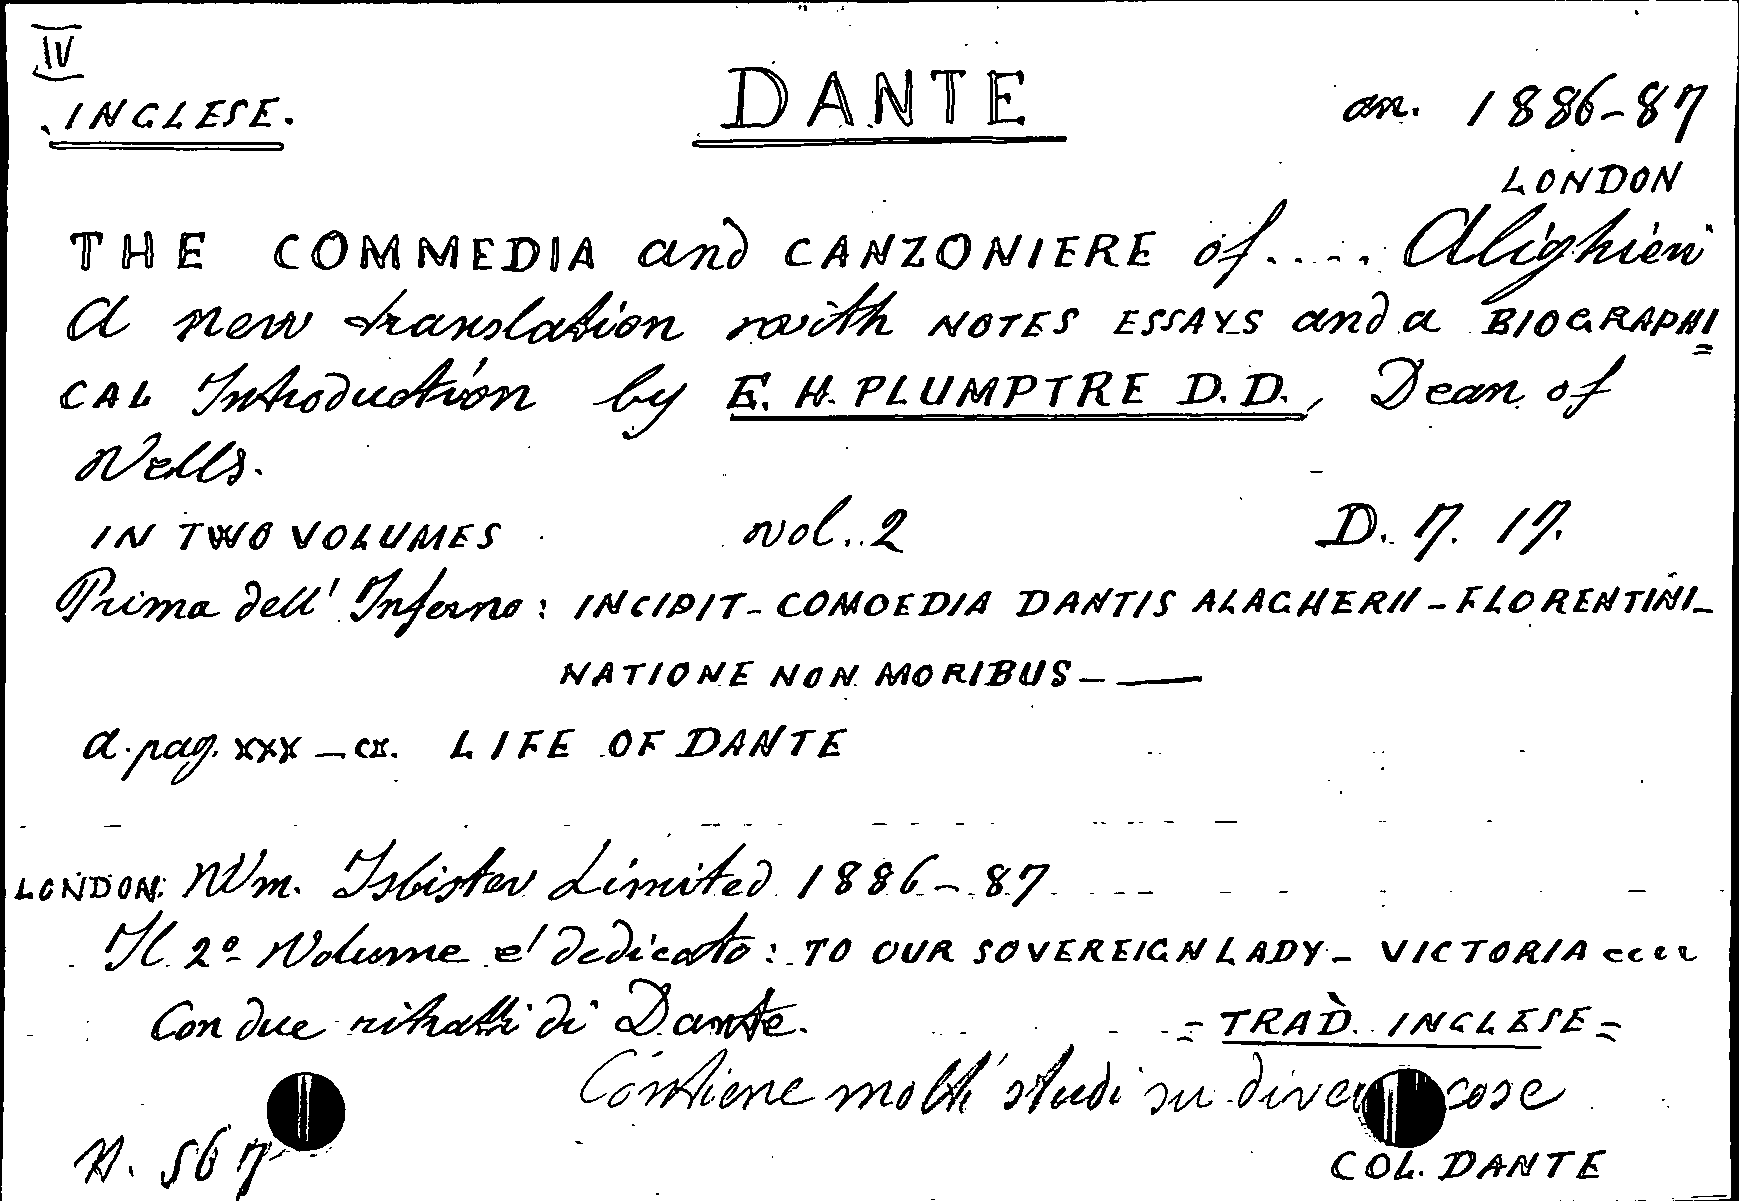 IV
INGLESE. DANTE an. 1886-87
LONDON
THE COMMEDIA and CANZONIERE of..... Alighieri
A new translation with NOTES ESSAYS and a BIOGRAPHI=
CAL Introduction by E. H. PLUMPTRE D.D., Dean of
Wells.
IN TWO VOLUMES vol. 2 D. 7. 17.
Prima dell' Inferno: INCIPIT - COMOEDIA DANTIS ALAGHERII - FLORENTINI -
NATIONE NON MORIBUS - —
a. pag. xxx - cx. LIFE OF DANTE
LONDON: Wm. Isbister Limited 1886-87
Il 2º Volume e' dedicato: TO OUR SOVEREIGN LADY - VICTORIA ecc
Con due ritratti di Dante. = TRAD. INGLESE =
Contiene molti studi su cose
N. 567 COL. DANTE